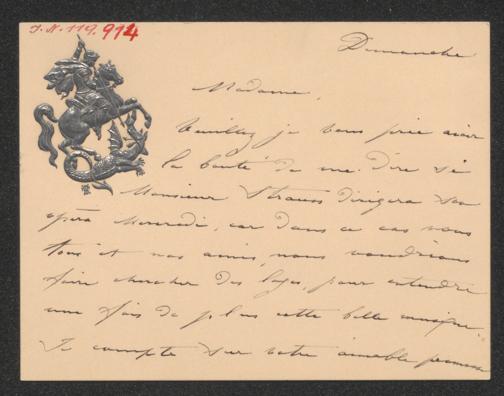 I.N. 119.914
Dimanche
Madame,
Veuillez je vous prie avoir
la bonté de me dire si
Monsieur Strauss dirigera son
opéra Mercredi, car dans ce cas nous
tous et nos amis, nous voudrions
faire chercher des loges, pour entendre
une fois de plus cette belle musique.
Je compte sur votre aimable promesse